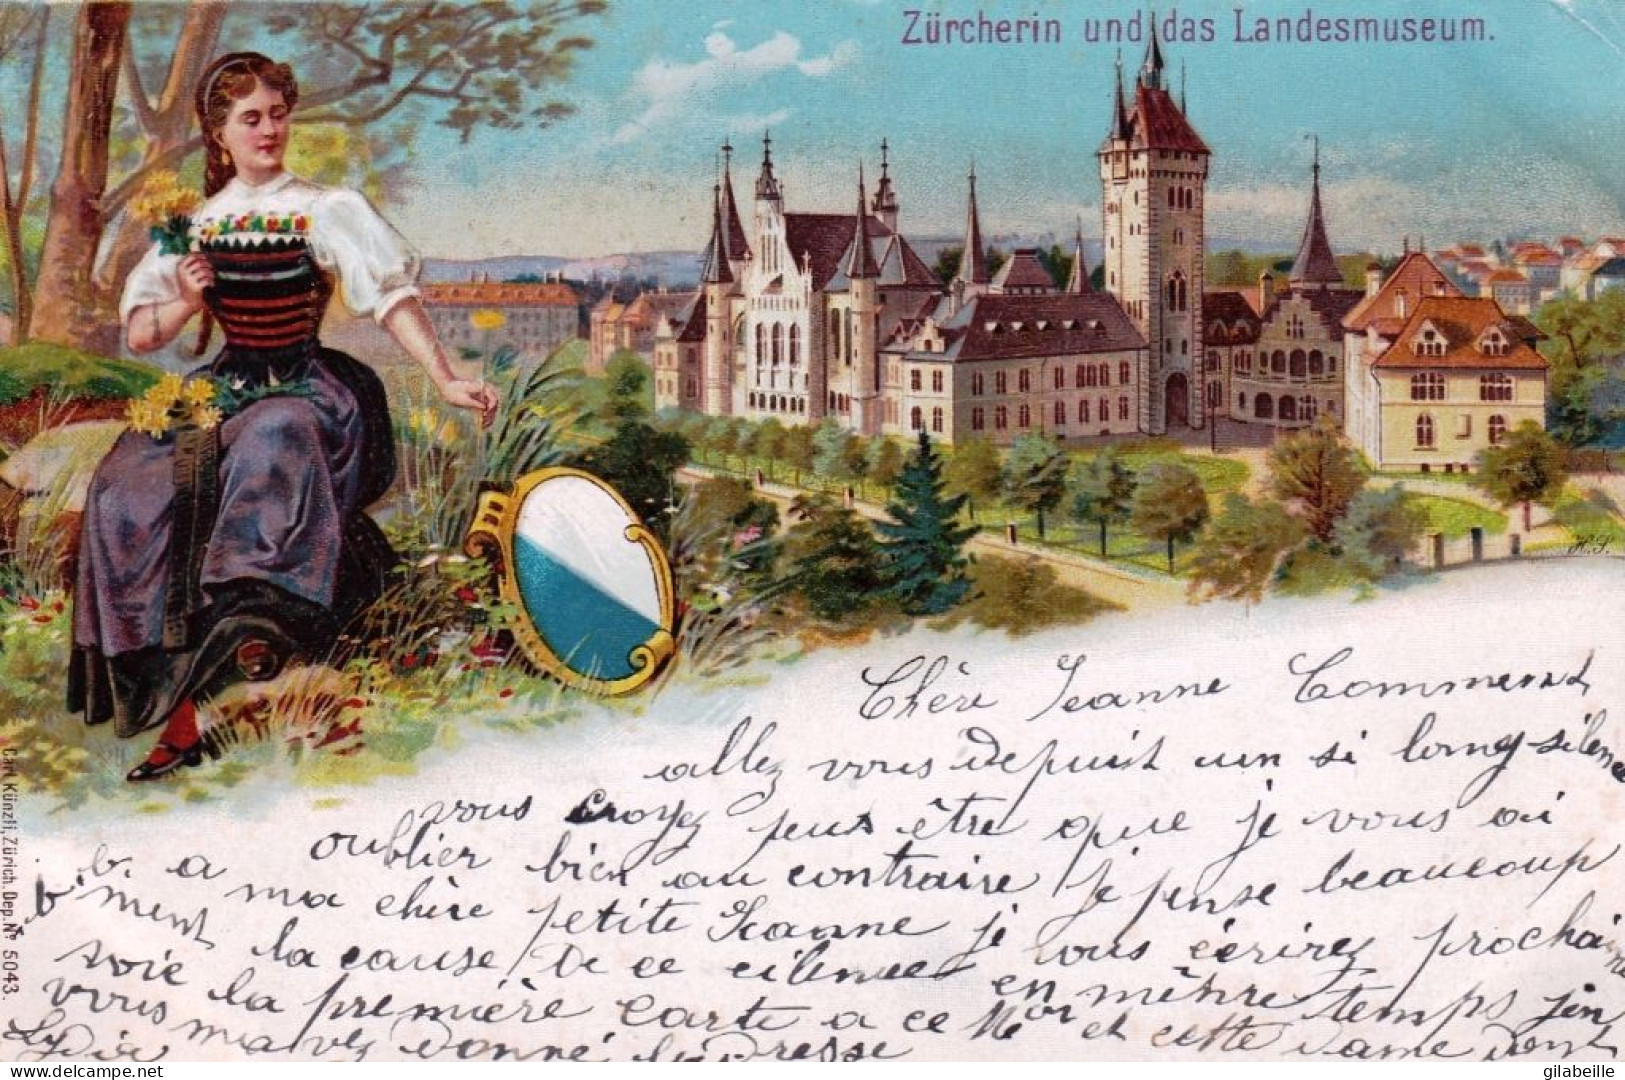 Zürcherin und das Landesmuseum.
H. S.
Chère Jeanne Comment
allez vous depuit un si long silence
vous croyez peut être que je vous ai
oublier bien au contraire je pense beaucoup
b. a ma chère petite Jeanne je vous écrirez prochaine
b'ment la cause De ce cilence en mêtre temps j'en
voie la première carte a ce Mr et cette Dame Dont
vous m'avez donné l'adresse
Lydia
Carl Künzli, Zürich. Dep. No 5043.
delcampe.net
gilabeille